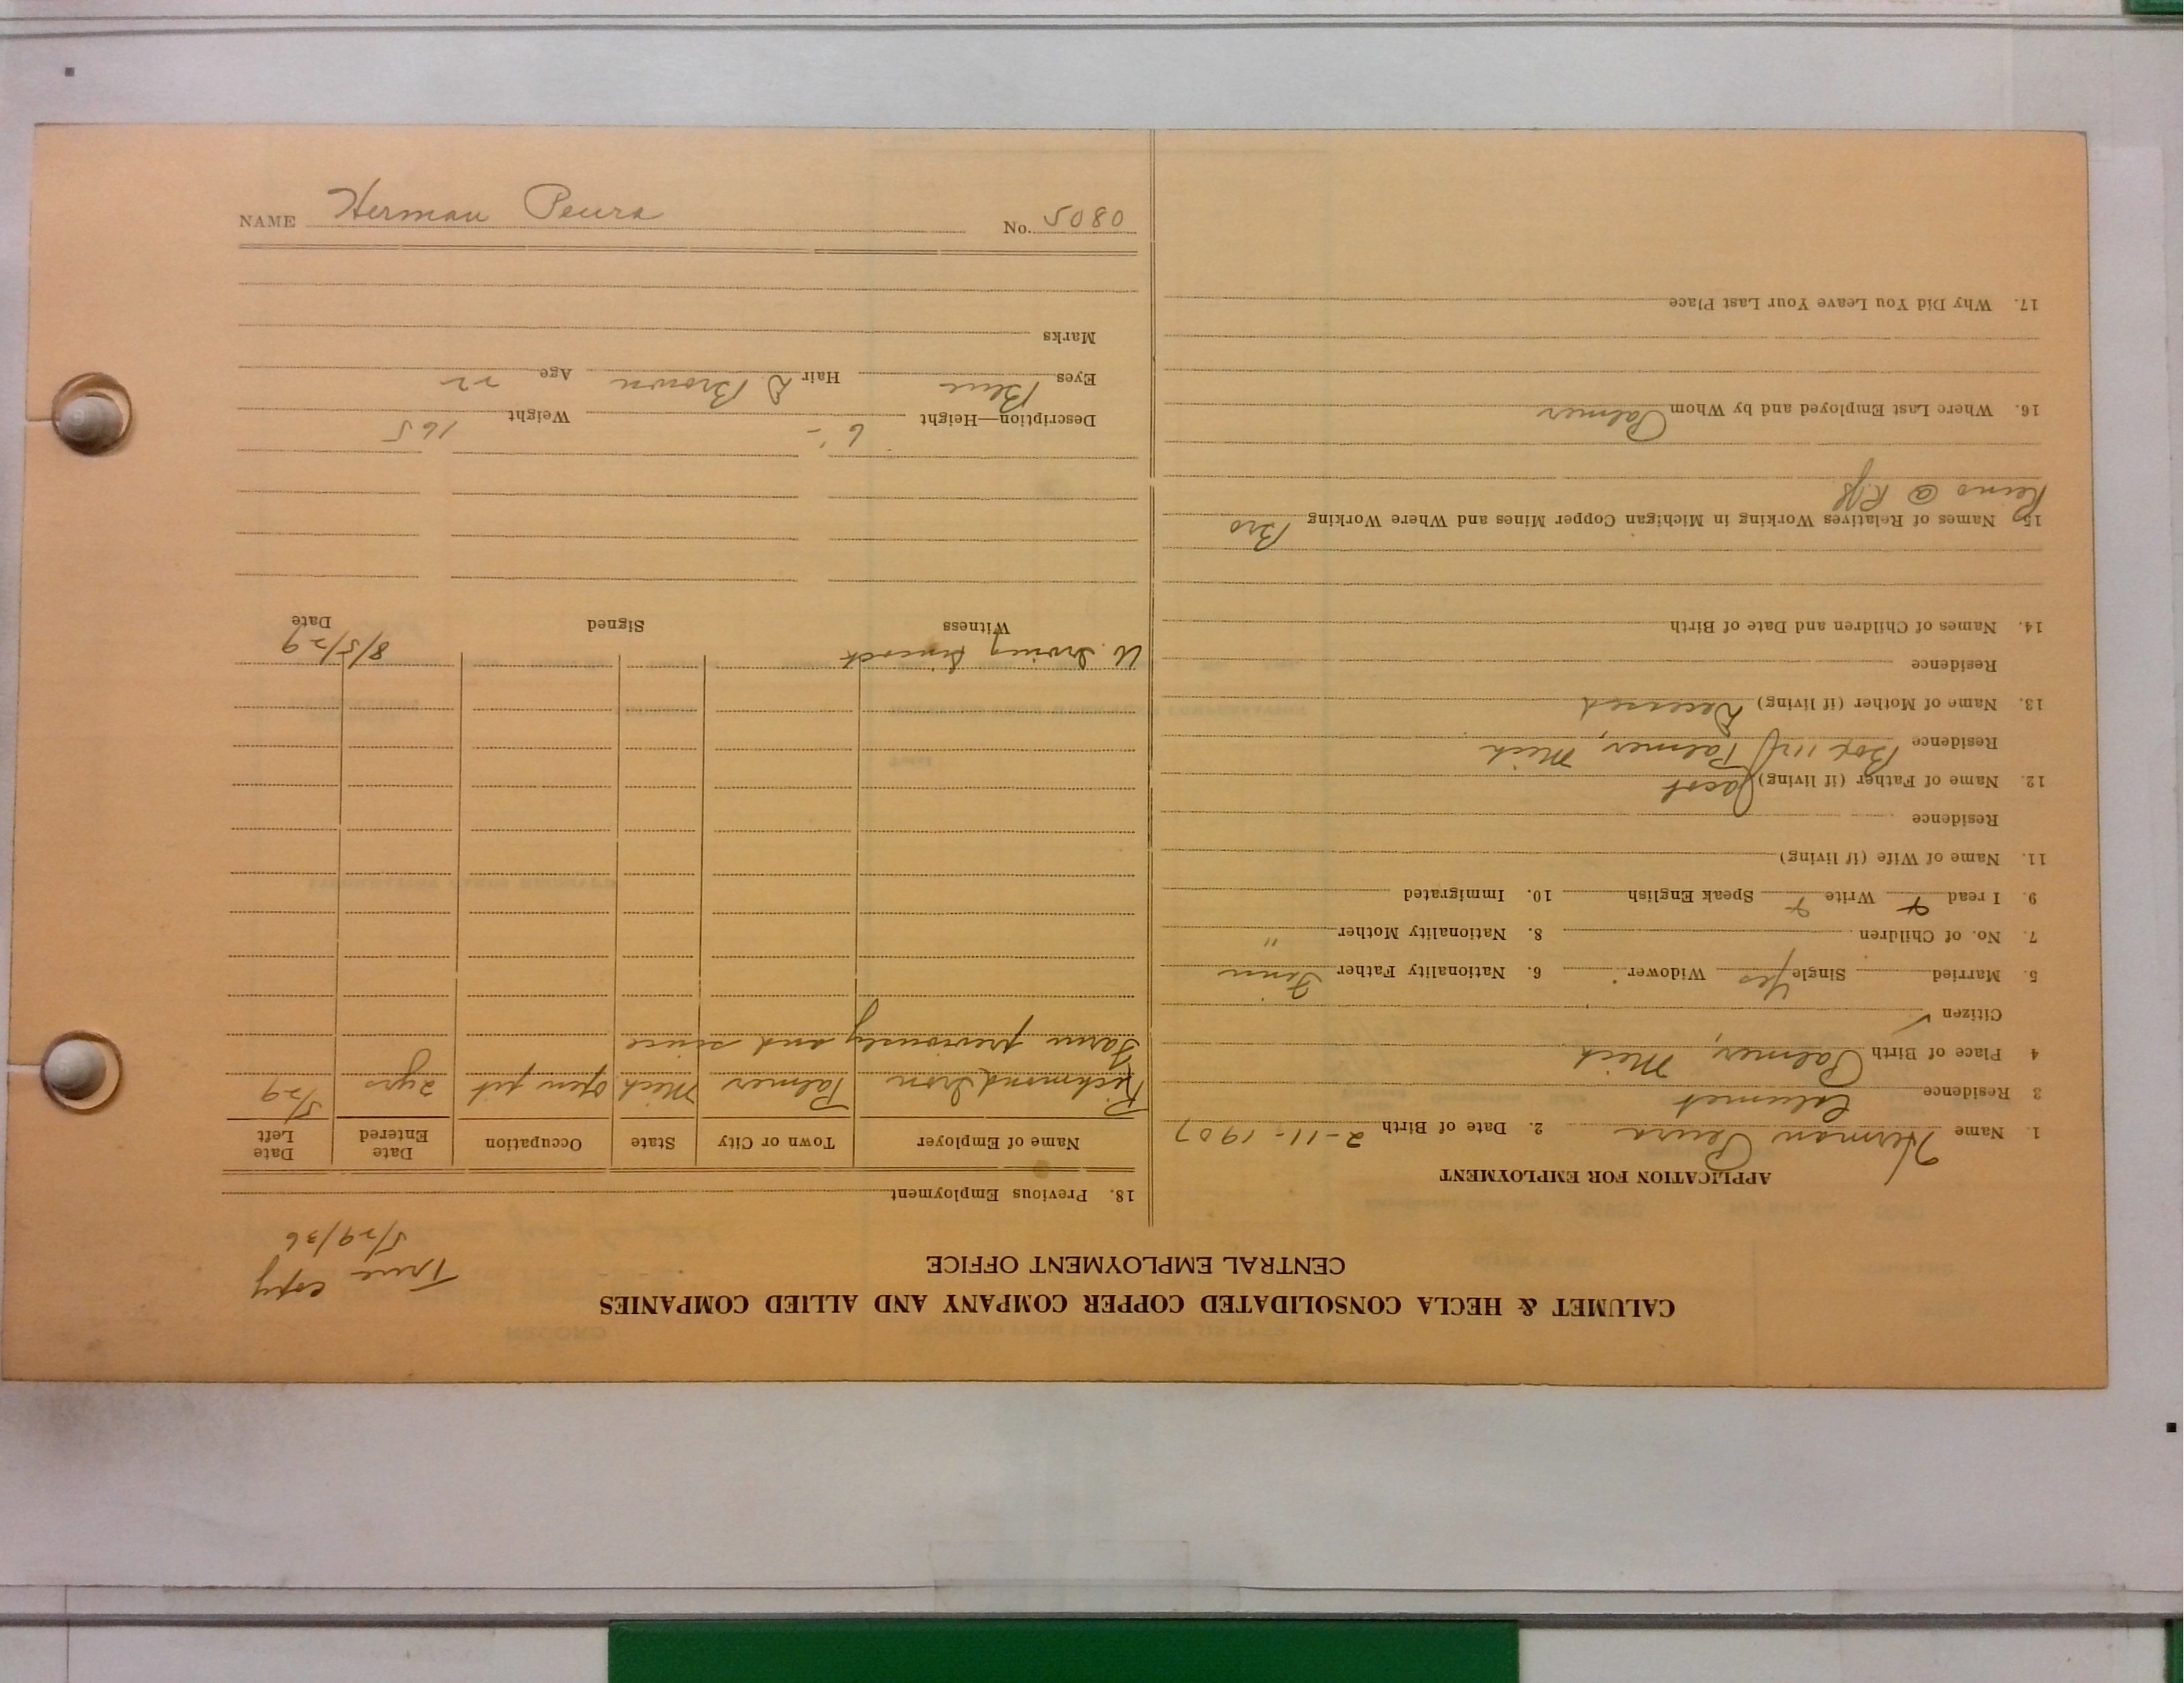 CALUMET & HECLA CONSOLIDATED COPPER COMPANY AND ALLIED COMPANIES
CENTRAL EMPLOYMENT OFFICE
True copy
5/29/36
APPLICATION FOR EMPLOYMENT
1. Name Herman Peura 2. Date of Birth 2-11-1907
3 Residence Calumet
4 Place of Birth Palmer, Mich
Citizen ✓
5. Married Single Yes Widower 6. Nationality Father Finn
7. No. of Children 8. Nationality Mother "
9. I read Write Speak English 10. Immigrated
11. Name of Wife (if living)
Residence
12. Name of Father (if living) Jacob
Residence Box 111 Palmer, Mich
13. Name of Mother (if living) Deceased
Residence
14. Names of Children and Date of Birth
15 Names of Relatives Working in Michigan Copper Mines and Where Working Bro
Reino @
16. Where Last Employed and by Whom Palmer
17. Why Did You Leave Your Last Place
18. Previous Employment
Name of Employer Town or City State Occupation Date Entered Date Left
Richmond Iron Palmer Mich open pit 2yrs 5/29
Farm previously and since
W. Irving 8/5/29
Witness Signed Date
Description—Height 6'- Weight 165
Eyes Blue Hair D. Brown Age 22
Marks
NAME Herman Peura No. 5080